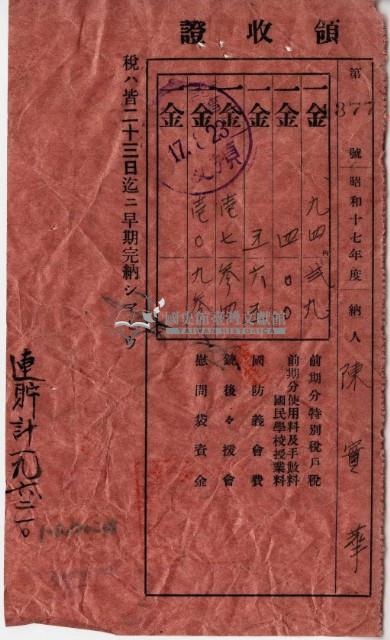 領收證
第377號 昭和十七年度 納人 陳寶華
一金 九四弐九 前期分特別稅戶稅
一金 四〇〇 前期分使用料及手數料 國民學校授業料
一金 五六五 國防義會費
一金 壱七参四 銃後々援會
一金 壱〇九参 慰問袋資金
17. 8. 23
稅ハ皆二十三日迄ニ早期完納シマセウ
連貯計
國史館臺灣文獻館
TAIWAN HISTORICA